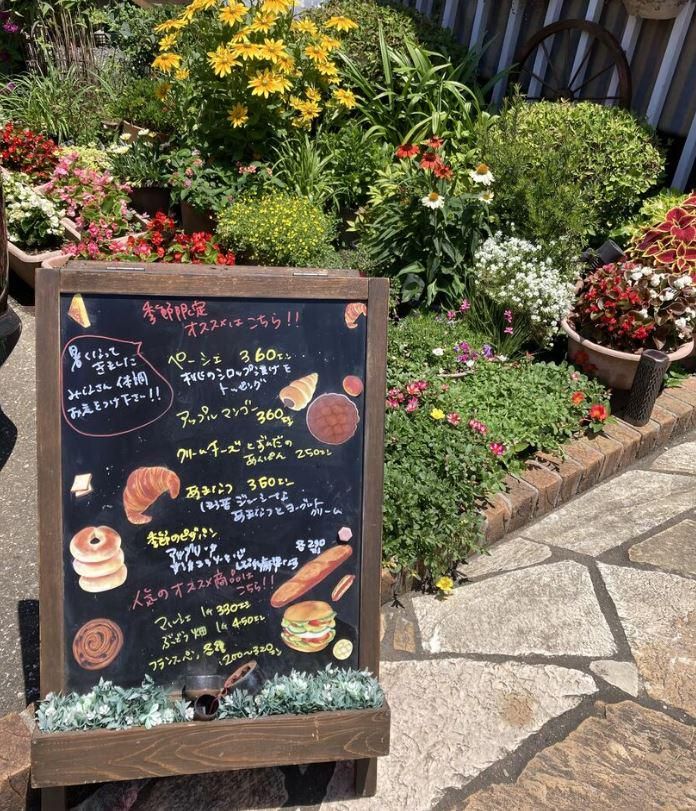 季節限定
オススメはこちら!!
暑くなって
きました
みなさん 体調
お気をつけ下さい!!
ペーシェ 360エン
桃のシロップ漬けを
トッピング
アップルマンゴ 360エン
クリームチーズとずんだの
あんぱん 250エン
あまなつ 360エン
あまなつとヨーグルト
クリーム
季節のピザパン
各290
人気のオススメ商品は
こちら!!
マルシェ 1ケ 330エン
ぶどう畑 1ケ 450エン
フランスパン 各種
200~320エン